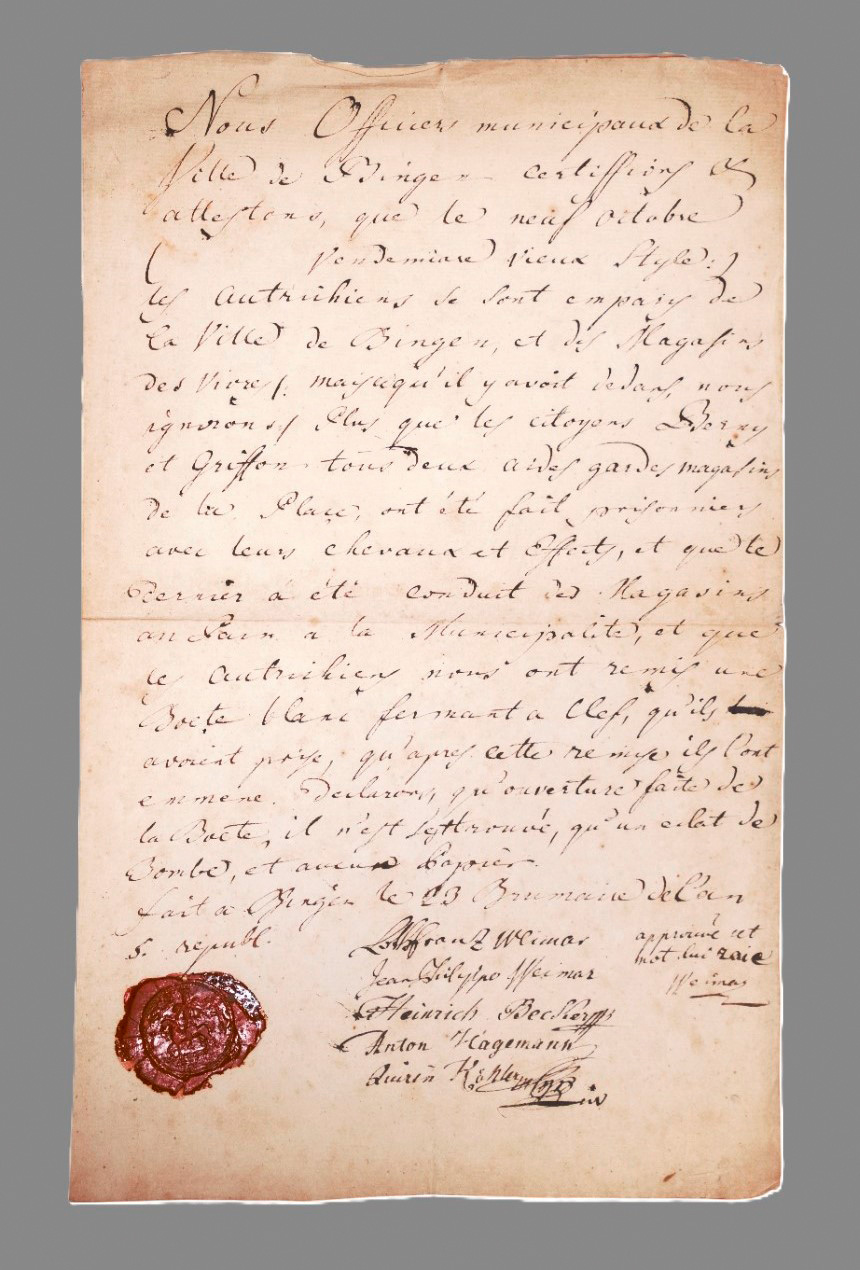 Nous Officiers municipaux de la
Ville de Bingen certiffions &
attestons, que le neuf octobre
( Vendemiare vieux Style :)
les Autrichiens se sont emparés de
la Ville de Bingen, et des Magasins
des vivres (: mais cequ'il y avoit dedans, nous
ignorons :) Plus que les citoyens
et Griffon tous deux aides gardes magasins
de la Place, ont été fait prisonniers
avec leurs chevaux et Effects, et que le
dernier a été conduit des Magasins
au Pain a la Municipalité, et que
le Autrichiens nous ont remis une
Boete blanc fermant a Clef, qu'ils
avoient prise, qu'apres cette remise ils l'ont
emmené. Declarons, qu'ouverture faite de
la Boete, il n'est trouvé, qu'un eclat de
Bombe, et aucun Papier.
fait a Bingen le 23 Brumaire de l'an
5. republ.
Franz Weimar
approuvé cet
mot lui raié
Weimar
Jean Philippe Weimar
Heinrich Becker
Anton Hagemann
Quirin